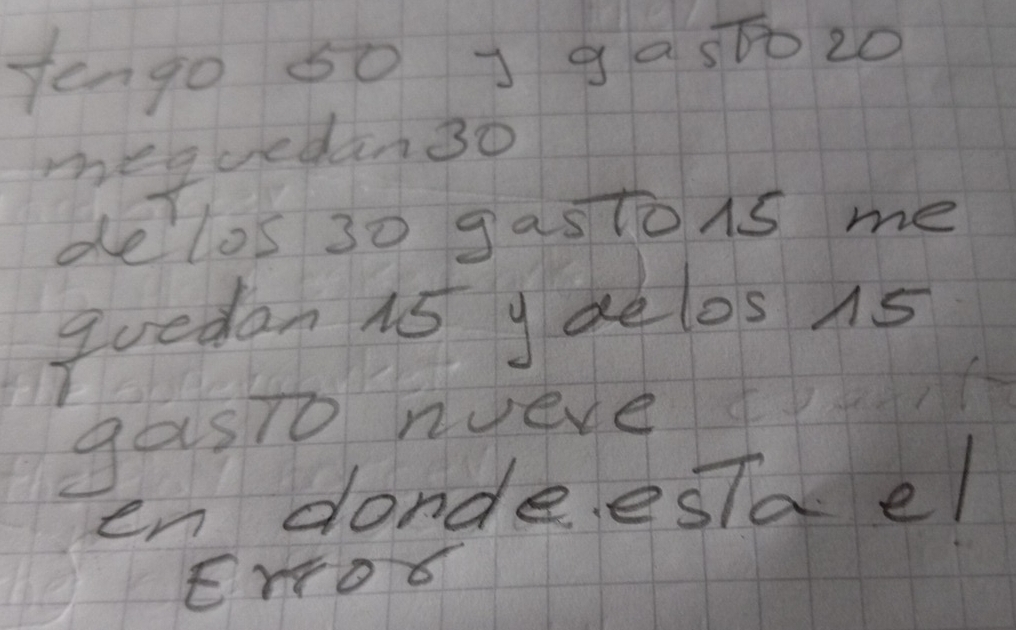 tengo 50 y gasto 20
me quedan 30
de los 30 gasto 15 me
quedan 15 y de los 15
gasto nueve
en donde esta el
Error